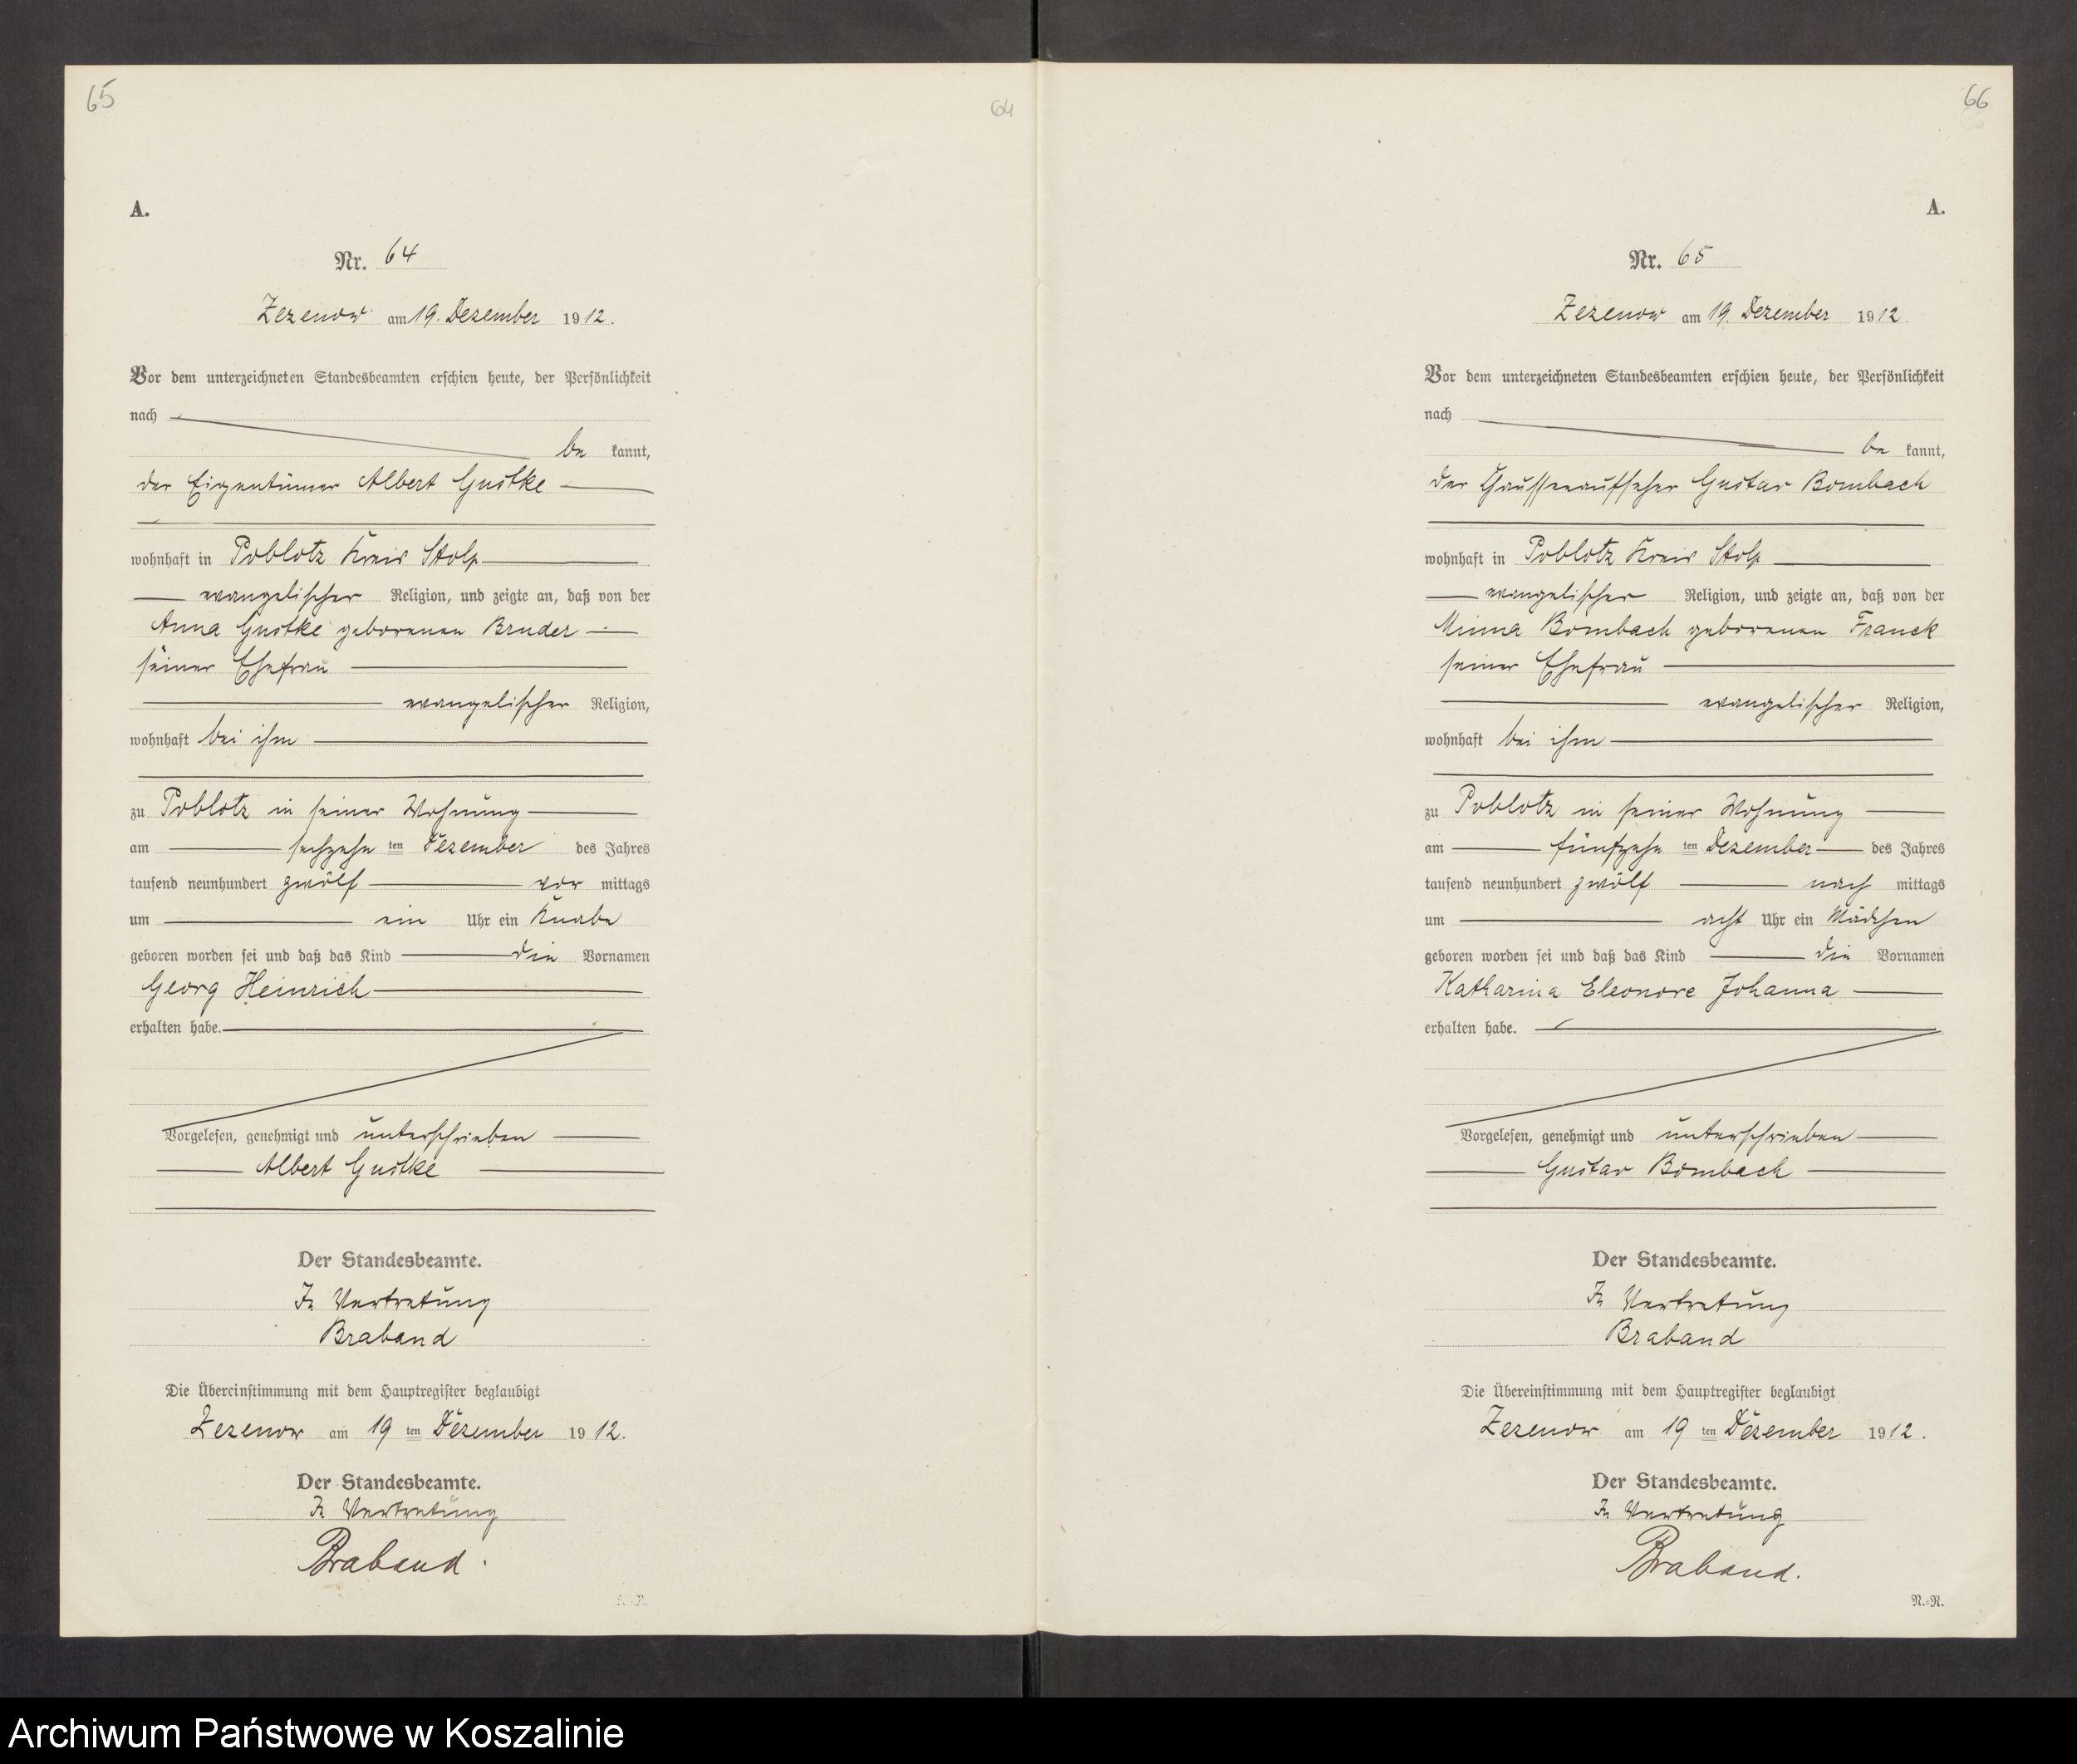 65
64
A.
Nr. 64
Zezenow am 19. Dezember 1912.
Vor dem unterzeichneten Standesbeamten erschien heute, der Persönlichkeit
nach
be kannt,
der Eigentümer Albert Gustke
wohnhaft in Poblotz Kreis Stolp
evangelischer Religion, und zeigte an, daß von der
Anna Gustke geborenen Bruder
seiner Ehefrau
evangelischer Religion,
wohnhaft bei ihm
zu Poblotz in seiner Wohnung
am sechzehn ten Dezember des Jahres
tausend neunhundert zwölf vor mittags
um ein Uhr ein Knabe
geboren worden sei und daß das Kind die Vornamen
Georg Heinrich
erhalten habe.
Vorgelesen, genehmigt und unterschrieben
Albert Gustke
Der Standesbeamte.
In Vertretung
Braband
Die Übereinstimmung mit dem Hauptregister beglaubigt
Zezenow am 19 ten Dezember 1912.
Der Standesbeamte.
In Vertretung
Braband.
66
A.
Nr. 65
Zezenow am 19. Dezember 1912.
Vor dem unterzeichneten Standesbeamten erschien heute, der Persönlichkeit
nach
be kannt,
der Chausseeaufseher Gustav Bombach
wohnhaft in Poblotz Kreis Stolp
evangelischer Religion, und zeigte an, daß von der
Minna Bombach geborenen Franck
seiner Ehefrau
evangelischer Religion,
wohnhaft bei ihm
zu Poblotz in seiner Wohnung
am fünfzehn ten Dezember des Jahres
tausend neunhundert zwölf nach mittags
um acht Uhr ein Mädchen
geboren worden sei und daß das Kind die Vornamen
Katharina Eleonore Johanna
erhalten habe.
Vorgelesen, genehmigt und unterschrieben
Gustav Bombach
Der Standesbeamte.
In Vertretung
Braband
Die Übereinstimmung mit dem Hauptregister beglaubigt
Zezenow am 19 ten Dezember 1912.
Der Standesbeamte.
In Vertretung
Braband.
N.-R.
Archiwum Państwowe w Koszalinie